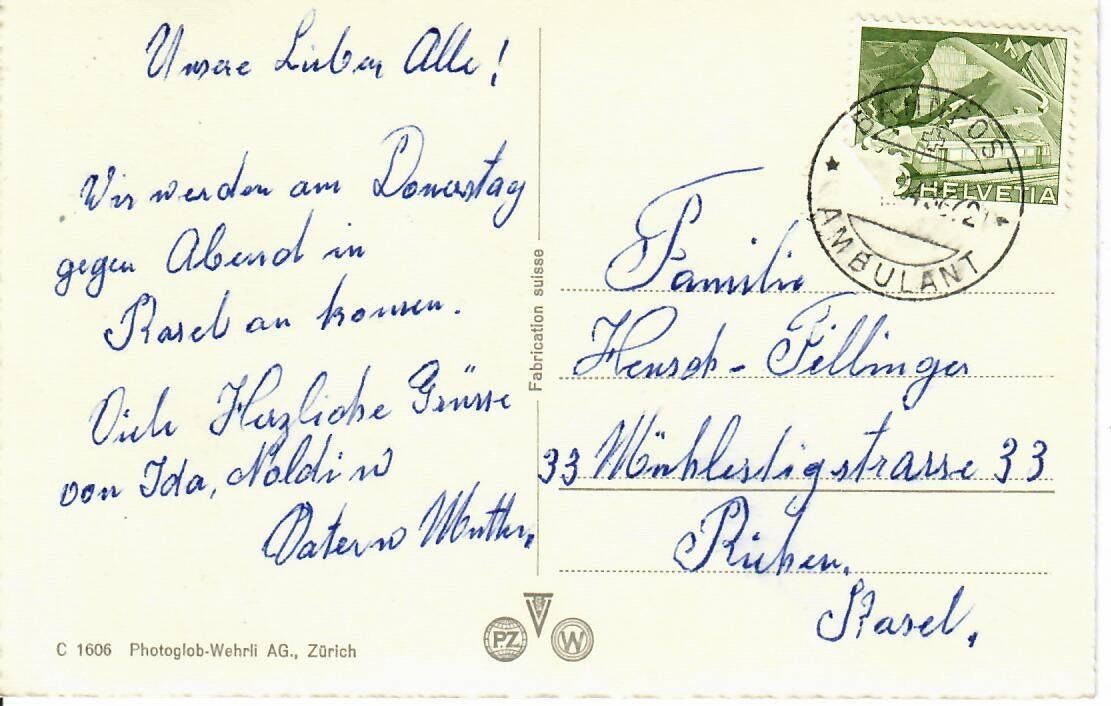 Unsere Lieben Alle!
Wir werden am Donerstag
gegen Abend in
Basel an komen.
Viele Herzliche Grüsse
von Ida, Noldi u
Vater u Mutter.
C 1606 Photoglob-Wehrli AG., Zürich
Fabrication suisse
PZ
W
HELVETIA
BAHNPOST
AMBULANT
Familie
Hensch-Fillinger
33 Mühlestigstrasse 33
Riehen.
Basel.